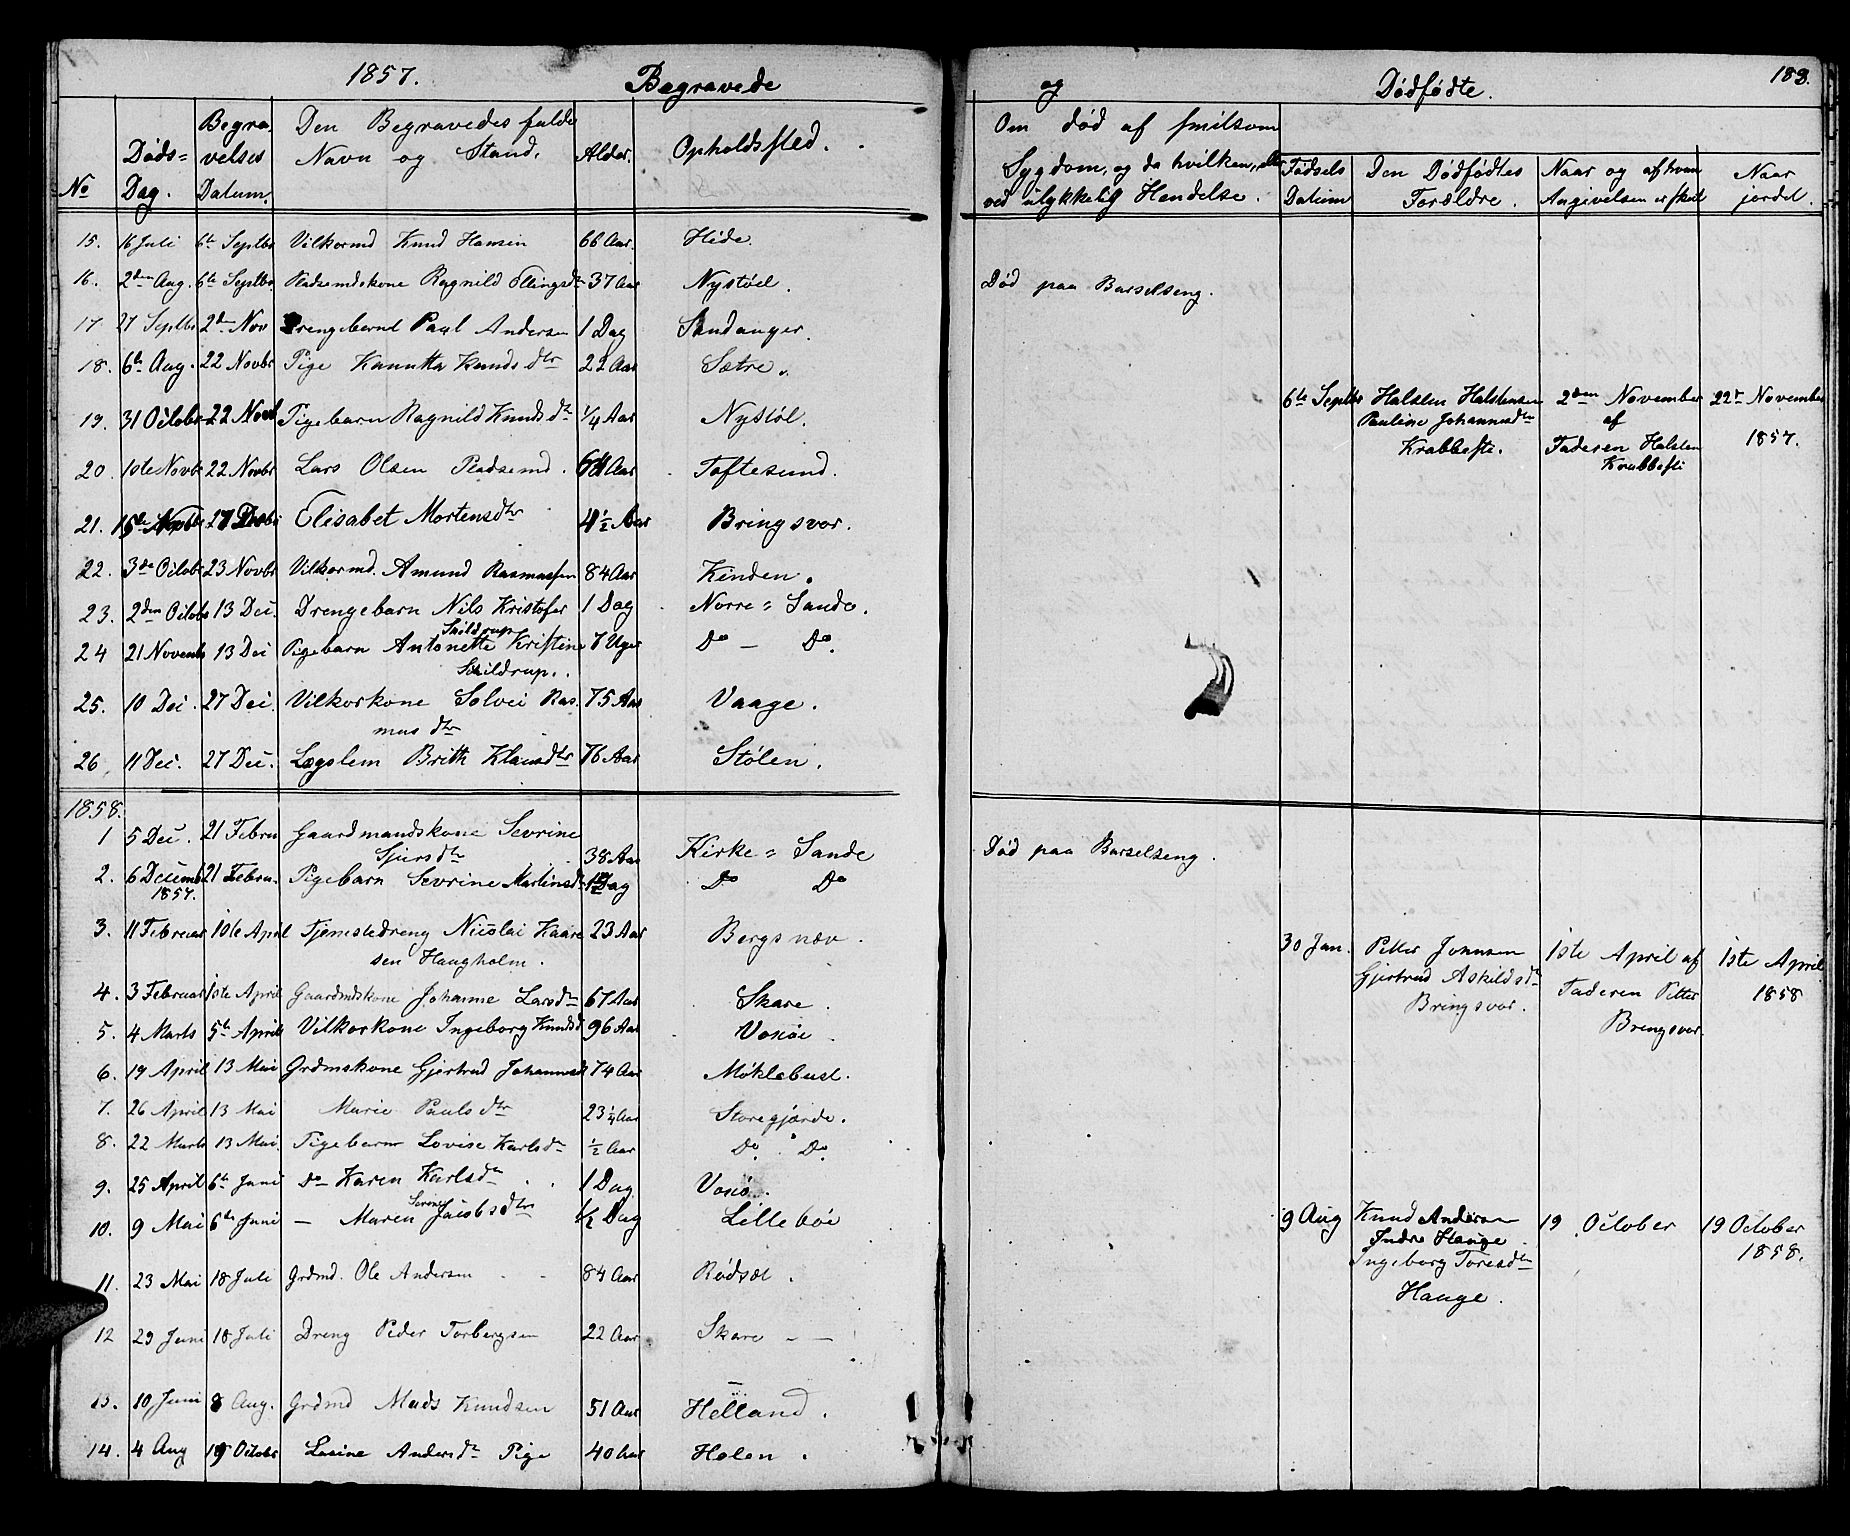 1857. Begravede
og Dødfødte. 183.
No
Døds= Dag.
Begra, velses Datum.
Den Begravedes fulde Navn og Stand.
Alder.
Opholdssted.
Om død af smitsom
Sygdom, og da hvilken, eller
ved ulykkelig Hendelse.
Fødsels Datum
Den Dødfødtes Forældre.
Naar og af hvem Angivelsen er skeet
Naar jordet.
15. 16 Juli 6te Septbr Vilkormd Knud Hansen 66 Aar. Hide.
16. 2den Aug. 6te Septbr Pladsmdskone Ragnild Ellingsdtr 37 Aar Nystøel. Død paa Barselseng.
17 27 Septbr 2den Nov Drengebarnet Paul Andersen 1 Dag Sandanger.
18. 6te Aug. 22 Novbr Pige Knudsdtr 22 Aar Sætre.
6te Septbr Halsten Halstensen 2den November 22de November
Pauline Johannesdtr af 1857.
Krabbestie. Faderen Halsten
Krabbesti
19. 31 Octobr 22 Novb Pigebarn Ragnild Knudsdtr 1/4 Aar Nystøl.
20. 1ste Novbr 22 Novbr Lars Olsen Pladsemd. Aar Toftesund.
21. 27 Decbr Elisabet Mortensdtr 4 1/2 Aar Bringsvor.
22. 3de Octobr 23 Novbr Vilkormd. Amund Rasmussen 84 Aar Kinden.
23. 2den Octobr 13 Dec. Drengebarn Nils Kristofer 1 Dag Norre= Sande.
Skildrup
24 21 Novemb 13 Dec Pigebarn Antonette Kristine 7 Uger Do - Do.
Skildrup.
25. 10 Dec. 27 Dec. Vilkorkone Solvei Ras 75 Aar Vaage.
mus dtr
26. 11 Dec. 27 Dec. Lægslem Brith Klausdtr 76 Aar Stølen.
1858.
1 5 Dec. 21 Febru Gaardmandskone Sevrine
Sjursdtr 38 Aar Kirke= Sande Død paa Barselseng.
2. 6 Decemb 21 Febru. Pigebarn Sevrine Martinsdtr Dag Do Do
1857.
3. 11 Februar 1ste April Tjenestedreng Nicolai Kaare 23 Aar Bergsnæv.
sen Haugholm.
30 Jan. Petter Johnsen 1ste April af 1ste April
Gjertrud Askildsdtr Faderen Petter 1858
Bringsvor. Bringsvor.
4. 3 Februar 1ste April Gaardmdskone Johanne Larsdtr 67 Aar Skare.
5. 4 Marts 5te April Vilkorkone Ingeborg Knudsd 96 Aar Voksøe.
6. 19 April 13 Mai Grdmskone Gjertrud Johannesd 74 Aar Møklebust.
7. 26 April 13 Mai Marie Paulsdtr 23 1/4 Aar Storegjærde.
8. 22 Marts 13 Mai. Pigebarn Lovise Karlsdtr 1/2 Aar Do. Do.
9. 25 April 6te Juni Do Karen Karlsdtr 1 Dag Voksø.
10. 9 Mai 6te Juni — Maren Sevrine Jacobsdtr 1/2 Dag Lillebøe
9 Aug Knud Andersen 19 October 19 October
Indre Hauge 1858.
Ingeborg Toresdtr
Hauge.
11. 23 Mai 18 Juli Grdmd. Ole Andersen 84 Aar Rødsæt.
12 29 Juni 18 Juli Dreng Peder Torbergsen 22 Aar Skare
13. 10 Juni 8 Aug. Grdmd Mads Knudsen 51 Aar Helland.
14. 4 Aug 19 Octobr Lasine Andersdtr Pige 40 Aar Holen.